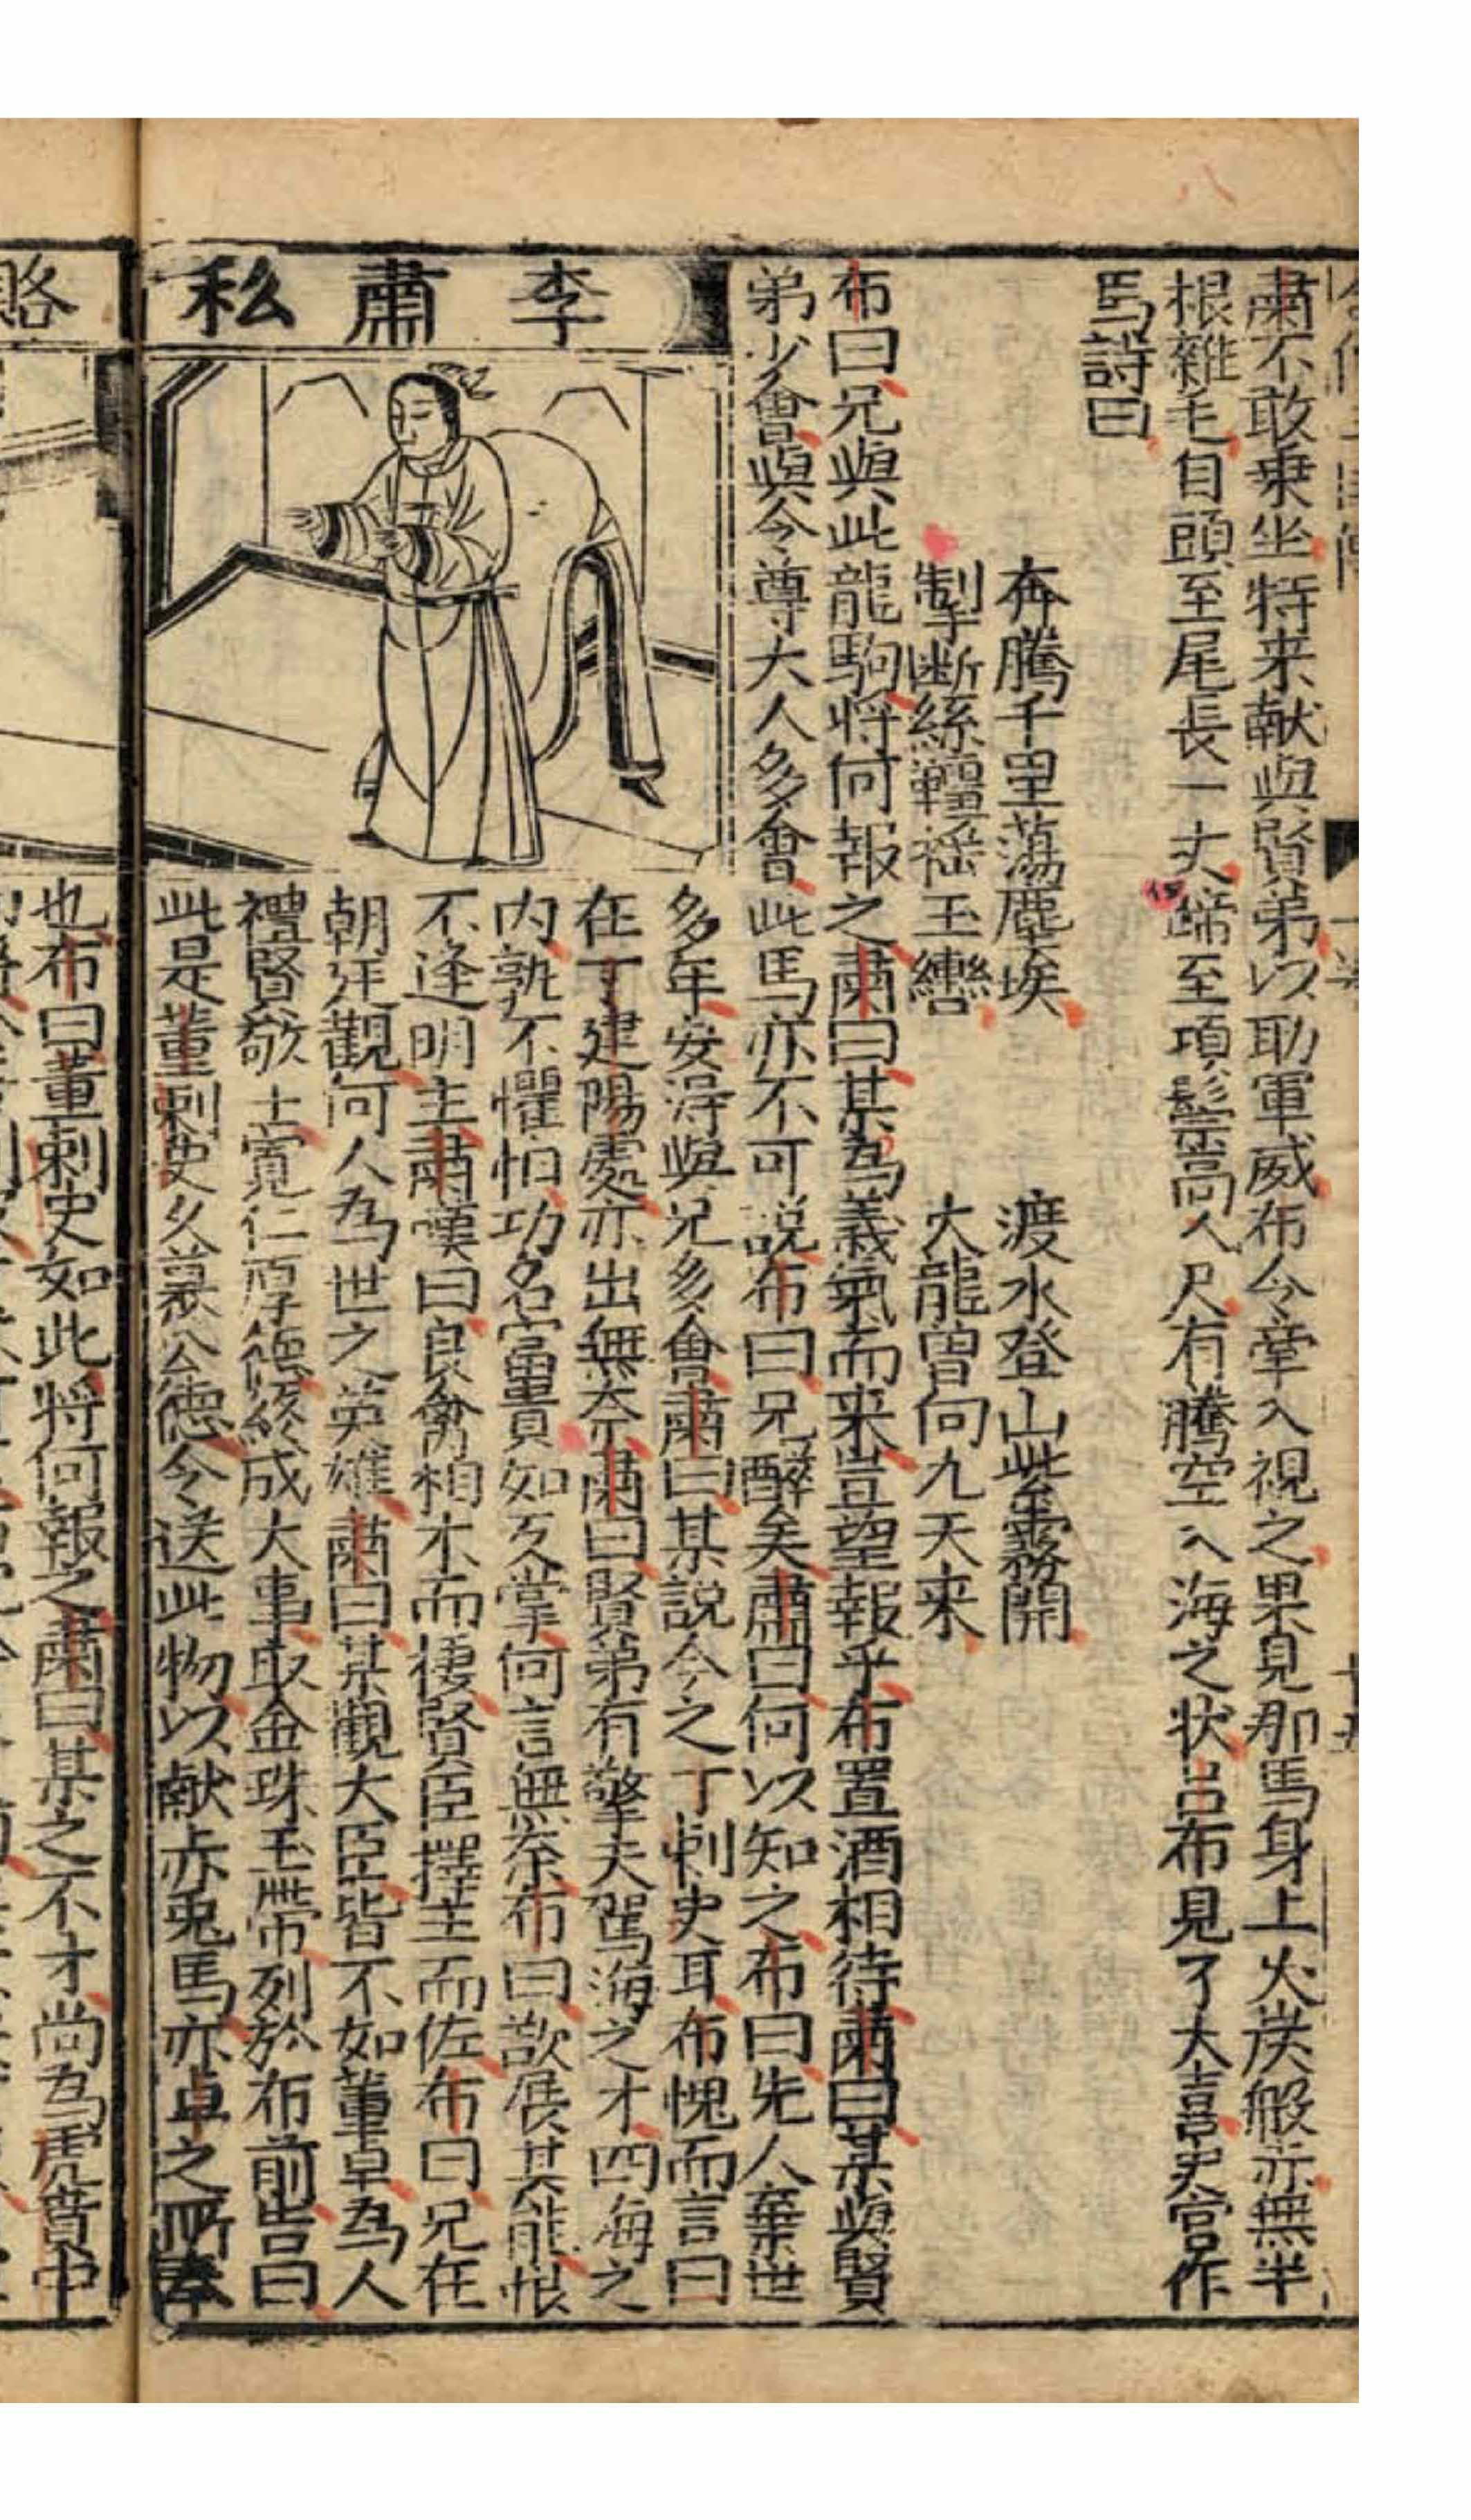 肅不敢乗坐特来献與賢弟以助軍威布令牽入視之果見那馬身上火炭般赤無半
根雜毛自頭至尾長一丈蹄至項鬃高八尺有騰空入海之状吕布見了大喜史官作
馬詩曰
奔騰千里蕩塵埃 渡水登山紫霧開
掣断絲韁揺玉轡 火龍曽向九天来
布曰兄與此龍駒将何報之肅曰某為義氣而来豈望報乎布置酒相待肅曰某與賢
弟少會與令尊大人多會此馬亦不可説布曰兄醉矣肅曰何以知之布曰先人棄世
李肅私
多年安淂與兄多會肅曰某説今之丁刺史耳布愧而言曰
在丁建陽處亦出無奈肅曰賢弟有擎天駕海之才四海之
内孰不懼怕功名冨貴如反掌何言無奈布曰欲展其能恨
不逢明主肅嘆曰良禽相木而棲賢臣擇主而佐布曰兄在
朝廷觀何人為世之英雄肅曰某觀大臣皆不如董卓為人
禮賢敬士寛仁厚德終成大事取金珠玉帶列於布前告曰
此是董刺史久慕公德令送此物以献赤兎馬亦卓之所奉
賂
也布曰董刺史如此将何報之肅曰某之不才尚為虎賁中